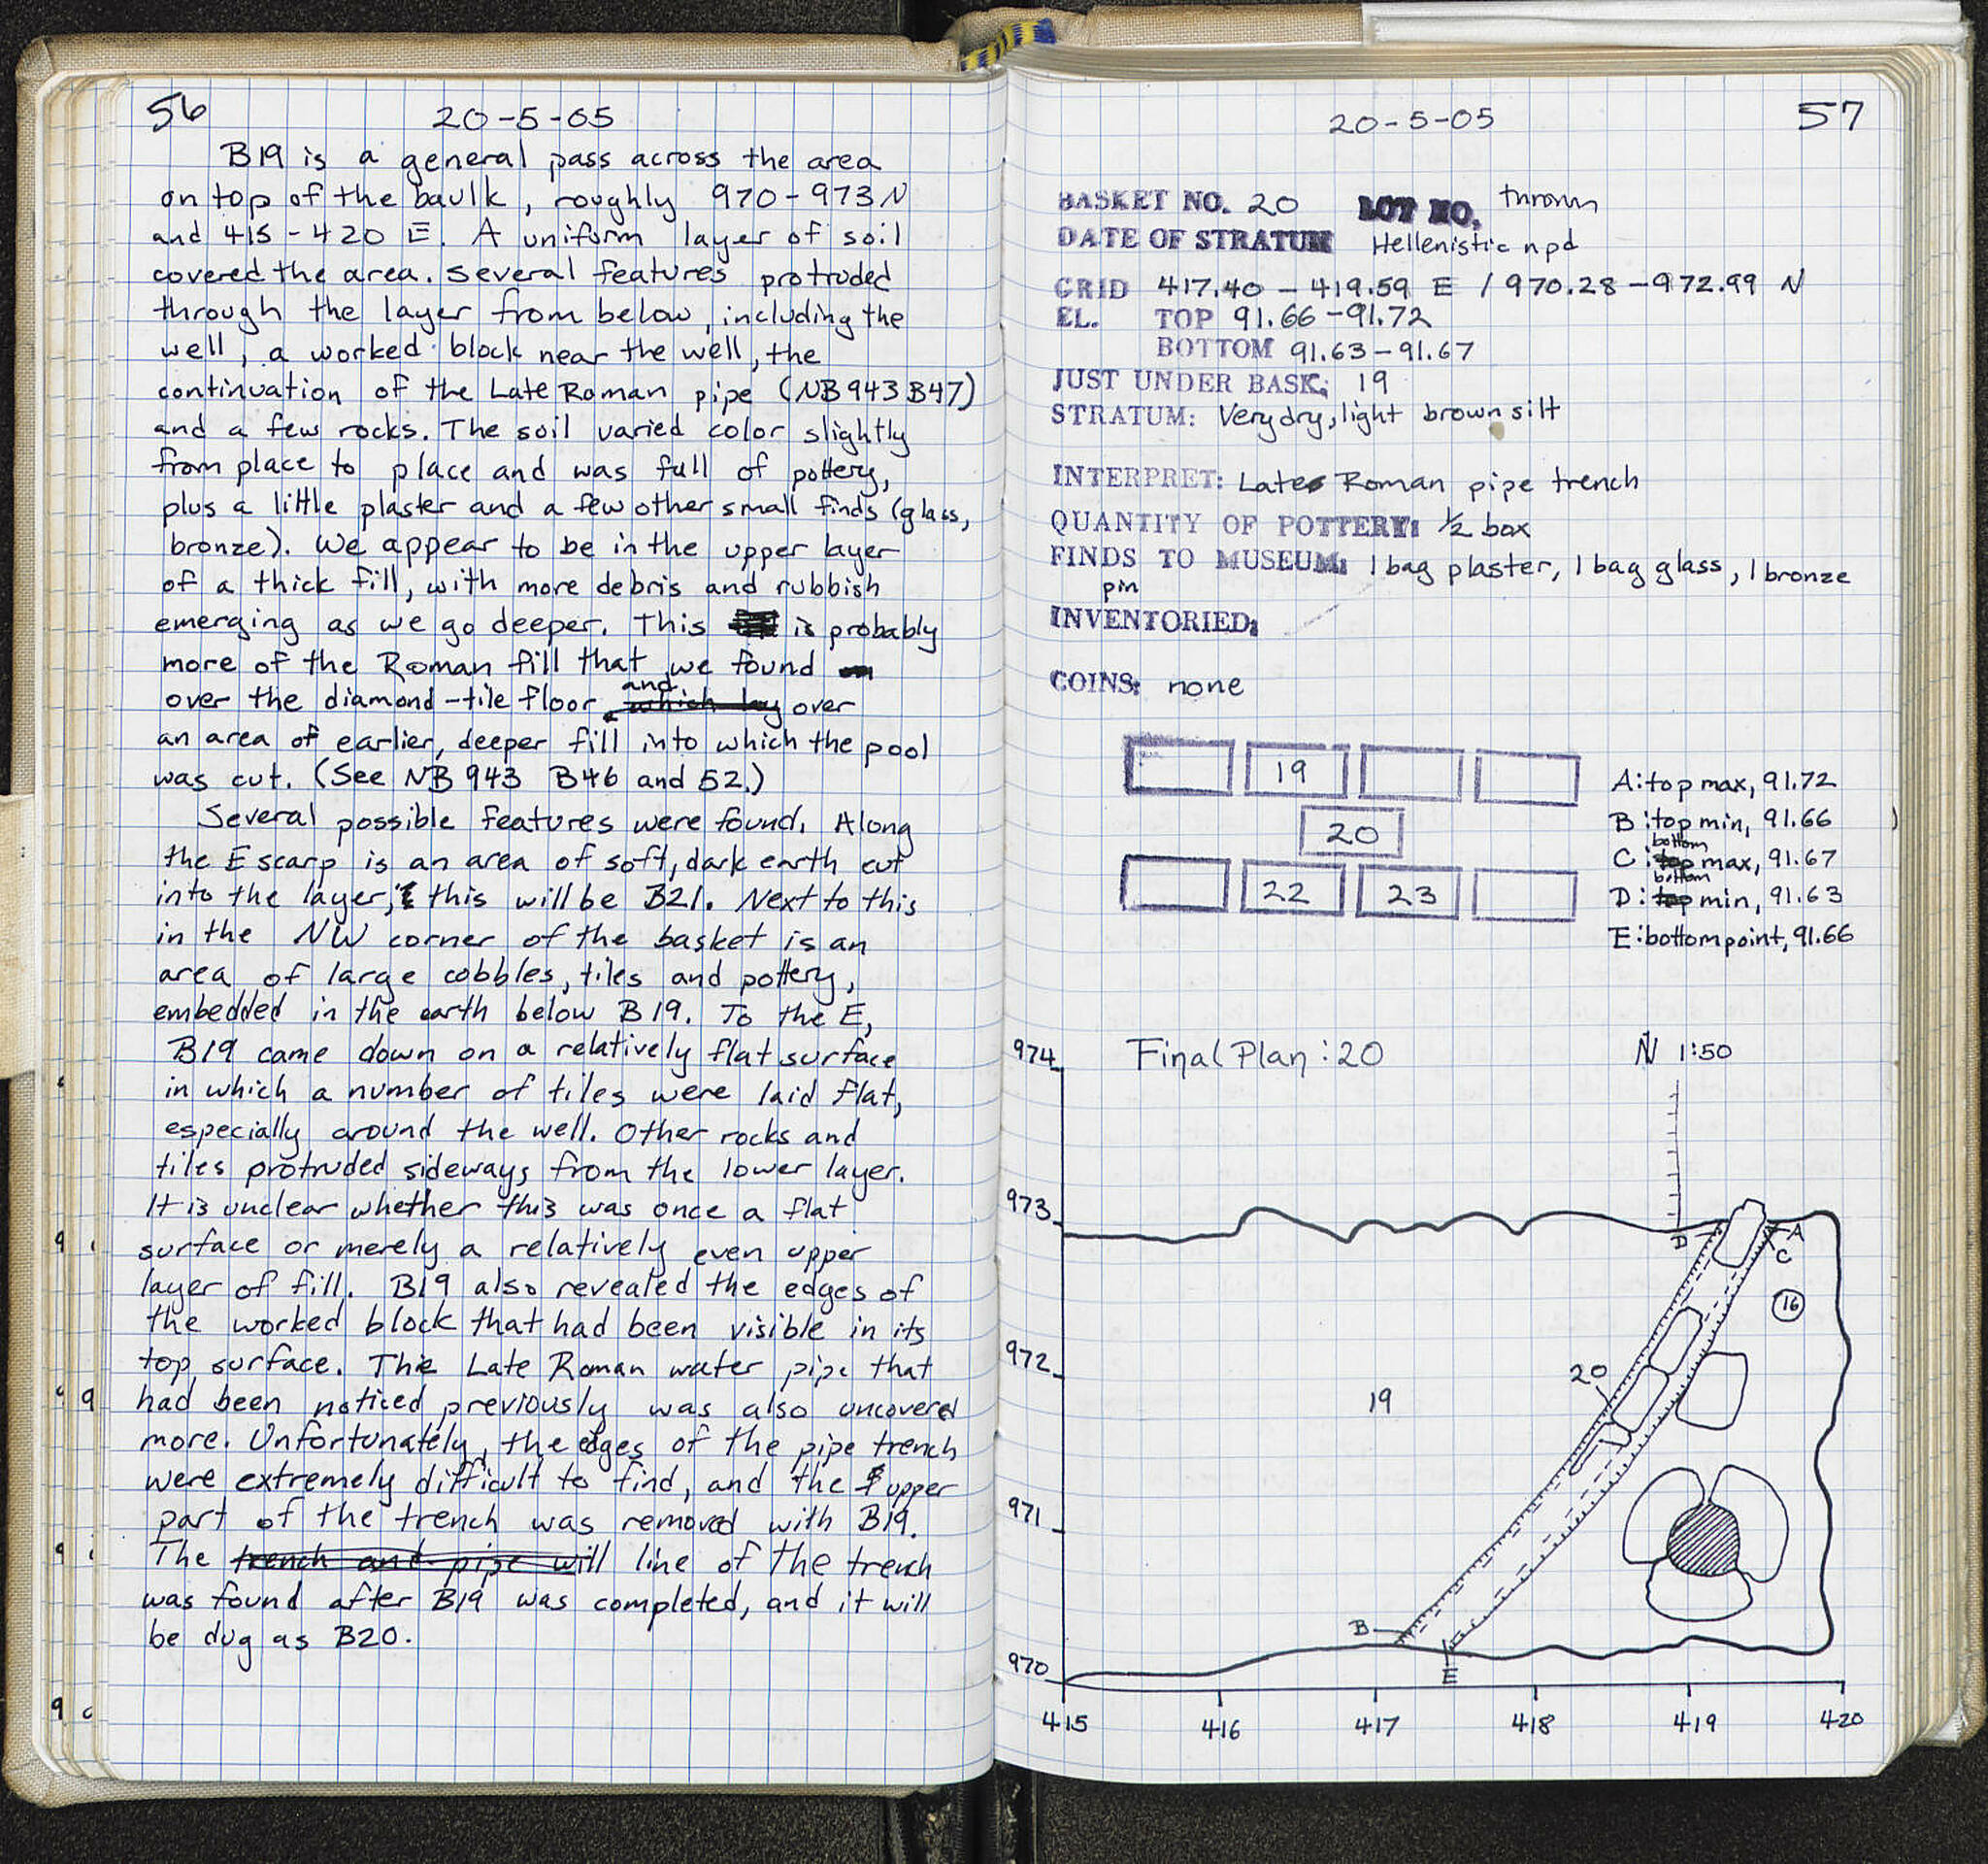 56
20-5-05
B19 is a general pass across the area
on top of the baulk, roughly 970-973 N
and 415-420 E. A uniform layer of soil
covered the area. Several features protruded
through the layer from below, including the
well, a worked block near the well, the
continuation of the Late Roman pipe (NB 943 B47)
and a few rocks. The soil varied color slightly
from place to place and was full of pottery,
plus a little plaster and a few other small finds (glass,
bronze). We appear to be in the upper layer
of a thick fill, with more debris and rubbish
emerging as we go deeper. This is probably
more of the Roman fill that we found
over the diamond-tile floor and which lay over
an area of earlier, deeper fill into which the pool
was cut. (See NB 943 B46 and 52.)
Several possible features were found. Along
the E scarp is an area of soft, dark earth cut
into the layer; this will be B21. Next to this
in the NW corner of the basket is an
area of large cobbles, tiles and pottery,
embedded in the earth below B19. To the E,
B19 came down on a relatively flat surface
in which a number of tiles were laid flat,
especially around the well. Other rocks and
tiles protruded sideways from the lower layer.
It is unclear whether this was once a flat
surface or merely a relatively even upper
layer of fill. B19 also revealed the edges of
the worked block that had been visible in its
top surface. The Late Roman water pipe that
had been noticed previously was also uncovered
more. Unfortunately, the edges of the pipe trench
were extremely difficult to find, and the upper
part of the trench was removed with B19.
The trench and pipe will line of the trench
was found after B19 was completed, and it will
be dug as B20.
20-5-05
57
BASKET NO. 20 LOT NO. thrown
DATE OF STRATUM Hellenistic npd
GRID 417.40-419.59 E / 970.28-972.99 N
EL. TOP 91.66-91.72
BOTTOM 91.63-91.67
JUST UNDER BASK: 19
STRATUM: Very dry, light brown silt
INTERPRET: Late Roman pipe trench
QUANTITY OF POTTERY: ½ box
FINDS TO MUSEUM: 1 bag plaster, 1 bag glass, 1 bronze
pin
INVENTORIED:
COINS: none
19
20
22 23
A: top max, 91.72
B: top min, 91.66
C: bottom max, 91.67
D: bottom min, 91.63
E: bottom point, 91.66
Final Plan: 20
N 1:50
974
973
972
971
970
D
A
C
16
20
19
B
E
415 416 417 418 419 420